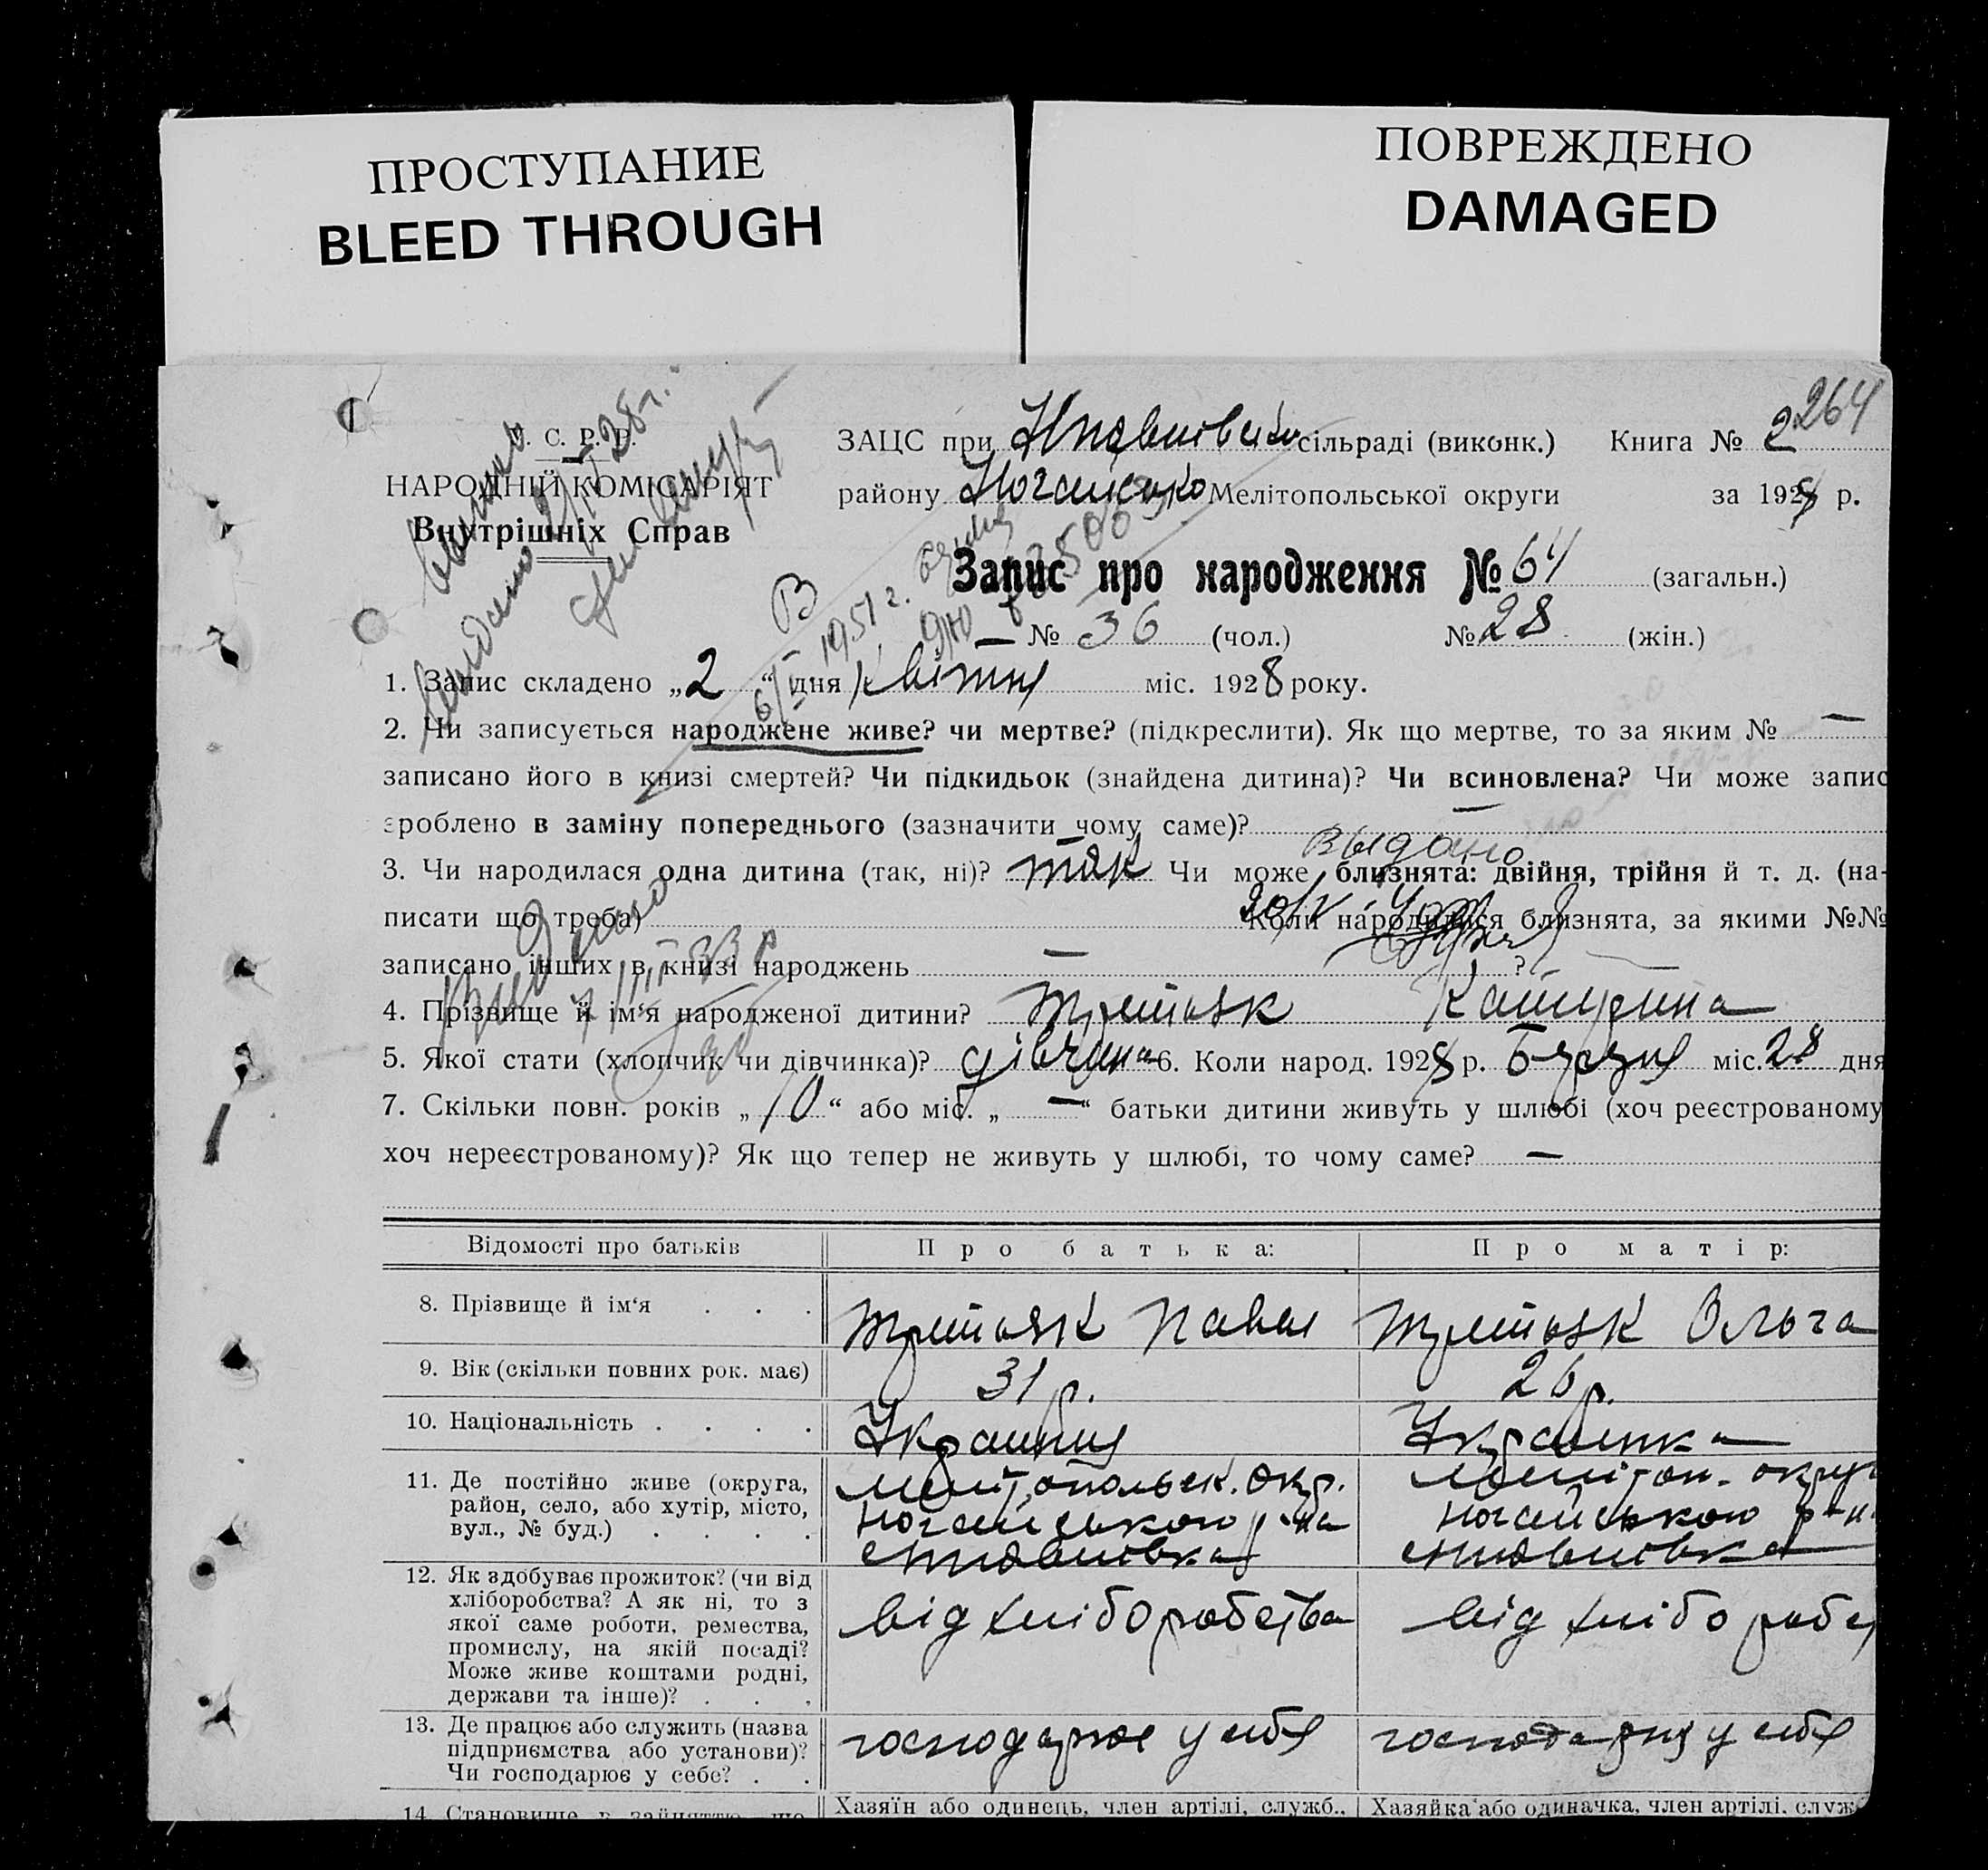 ПРОСТУПАНИЕ
BLEED THROUGH
ПОВРЕЖДЕНО
DAMAGED
264
У. С. Р. Р.
НАРОДНІЙ КОМІСАРІЯТ
Внутрішніх Справ
ЗАЦС при сільраді (виконк.) Книга № 2
району Ногайсько Мелітопольської округи за 1928 р.
Запис про народження № 64 (загальн.)
— № 36 (чол.) № 28 (жін.)
1. Запис складено „2“ дня Квітня міс. 1928 року.
2. Чи записується народжене живе? чи мертве? (підкреслити). Як що мертве, то за яким № —
записано його в книзі смертей? Чи підкидьок (знайдена дитина)? Чи всиновлена? Чи може запис
зроблено в заміну попереднього (зазначити чому саме)?
выдано
3. Чи народилася одна дитина (так, ні)? так Чи може близнята: двійня, трійня й т. д. (на-
писати що треба) Коли народилися близнята, за якими №№
записано інших в книзі народжень — ?
4. Прізвище й ім‘я народженої дитини? Третьяк Катерина
5. Якої стати (хлопчик чи дівчинка)? дівчина 6. Коли народ. 1928 р. Березня міс. 28 дня
7. Скільки повн. років „10“ або міс. „—“ батьки дитини живуть у шлюбі (хоч реєстрованому
хоч нереєстрованому)? Як що тепер не живуть у шлюбі, то чому саме? —
Відомості про батьків Про батька: Про матір:
8. Прізвище й ім‘я . . . Третьяк Павел Третьяк Ольга
9. Вік (скільки повних рок. має) 31 р. 26 р.
10. Національність . . . . Українец Украінка
11. Де постійно живе (округа,
район, село, або хутір, місто,
вул., № буд.) . . . .
Мелітопольськ. окр.
Ногайського р-на
Меліт́оп. округ
Ногайського р-н.
12. Як здобуває прожиток? (чи від
хліборобства? А як ні, то з
якої саме роботи, ремества,
промислу, на якій посаді?
Може живе коштами родні,
держави та інше)? . . .
від хліборобства
від хлібороб
13. Де працює або служить (назва
підприємства або установи)?
Чи господарює у себе? . .
господарює у себе
господарює у себе
14. Становище в зайняттю, що
Хазяїн або одинець, член артілі, служб.,
Хазяйка або одиначка, член артілі, служ